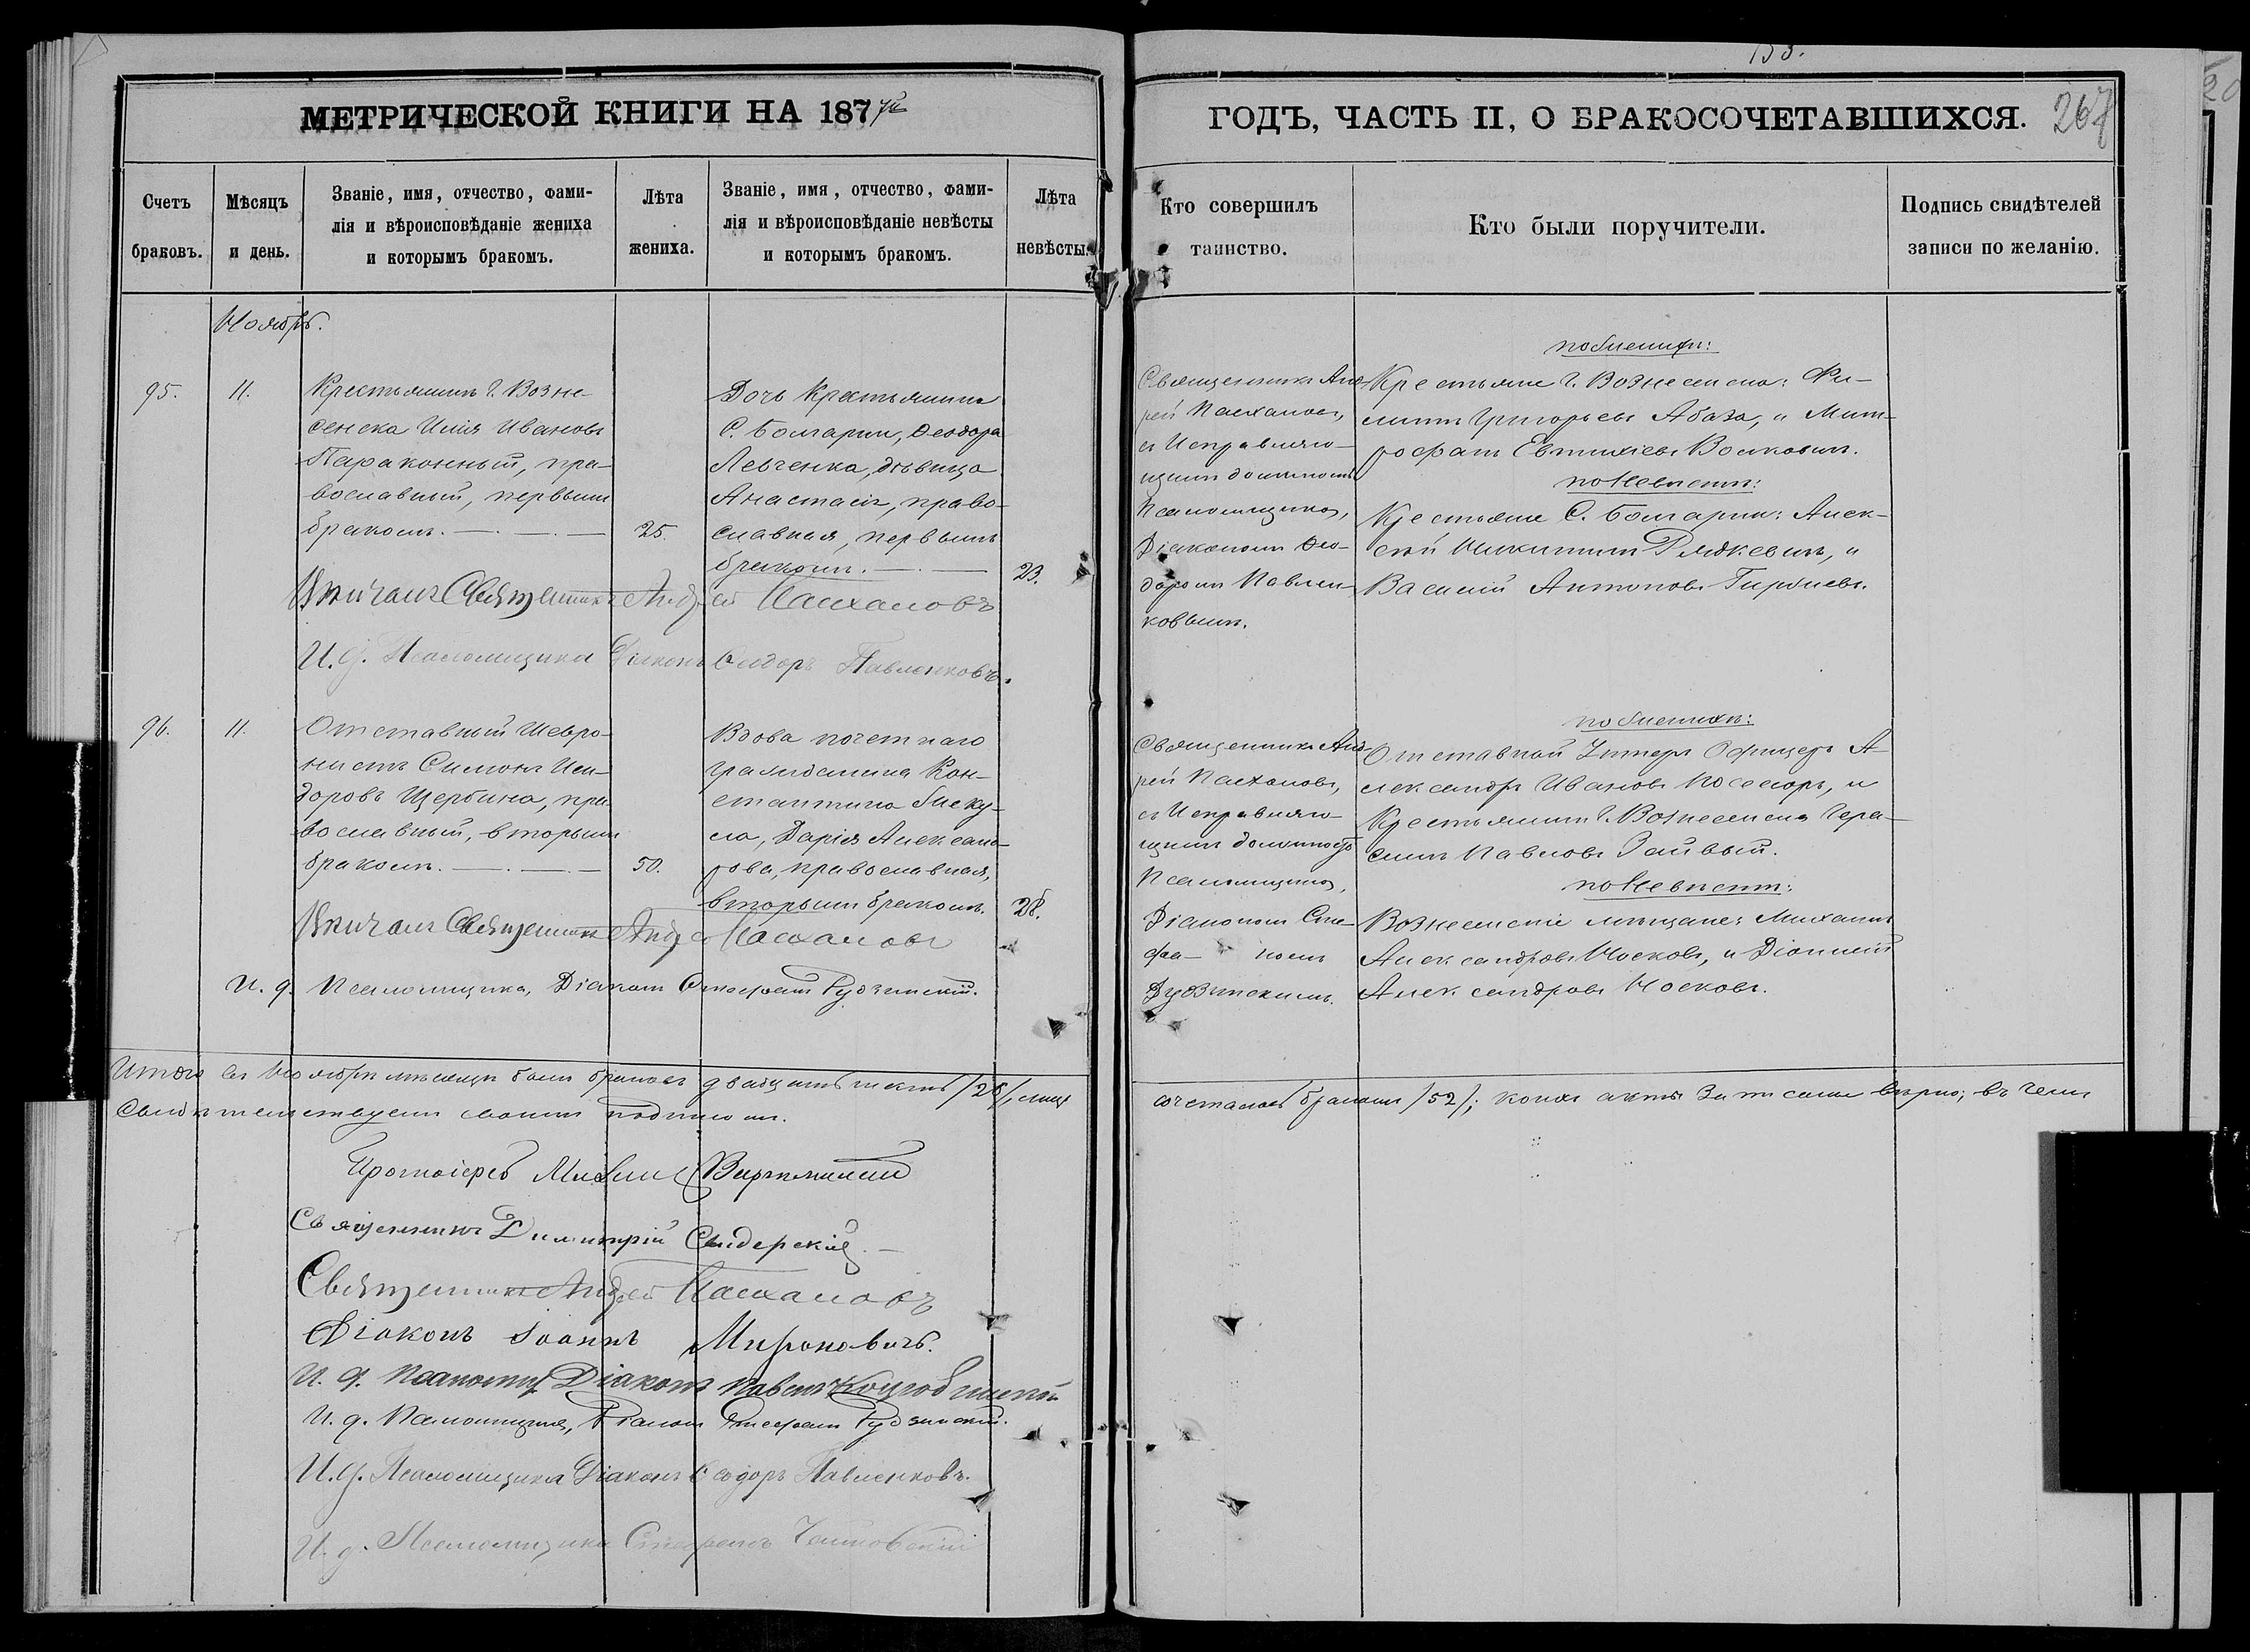 133.
МЕТРИЧЕСКОЙ КНИГИ НА 187
ГОДЪ, ЧАСТЬ II, О БРАКОСОЧЕТАВШИХСЯ. 267
Счетъ
браковъ.
Мѣсяцъ
и день.
Званіе, имя, отчество, фами-
лія и вѣроисповѣданіе жениха
и которымъ бракомъ.
Лѣта
жениха.
Званіе, имя, отчество, фами-
лія и вѣроисповѣданіе невѣсты
и которымъ бракомъ.
Лѣта
невѣсты.
Кто совершилъ
таинство.
Кто были поручители.
Подпись свидѣтелей
записи по желанію.
Ноябрь.
95.
11.
Крестьянинъ г. Возне-
сенска Илія Ивановъ
Параконный, пра-
вославный, первымъ
бракомъ.
25.
Дочь крестьянина
С. Болгарки, Ѳеодора
Левченка, дѣвица
Анастасія, право-
славная, первымъ
бракомъ.
23.
Священникъ Анд-
рей Пасхаловъ,
съ Исправляю-
щимъ должность
Псаломщика,
Діакономъ Ѳео-
доромъ Павлен-
ковымъ.
по женихѣ:
Крестьяне г. Вознесенска: Фи-
липпъ Григорьевъ Абаза, и Мит-
рофанъ Евтихіевъ Волковъ.
по Невѣстѣ:
Крестьяне С. Болгарки: Алек-
сѣй Никитинъ Рядкевичъ, и
Василій Антоновъ
Вѣнчалъ Священникъ Андрей Пасхаловъ
И. д. Псаломщика Діаконъ Ѳеодоръ Павленковъ.
96.
11.
Отставный Шевро-
нистъ Симонъ Иси-
доровъ Щербина, пра-
вославный, вторымъ
бракомъ.
50.
Вдова почетнаго
гражданина Кон-
стантина
Дарія Александ-
рова, православная,
вторымъ бракомъ.
28.
Священникъ Анд-
рей Пасхаловъ,
съ Исправляю-
щимъ должность
Псаломщика,
Діакономъ Сте-
фа- номъ
по женихѣ:
Отставной Унтеръ Офицеръ А-
лександръ Ивановъ и
Крестьянинъ г. Вознесенска Гера-
симъ Павловъ
по Невѣстѣ:
Вознесенскіе мѣщане: Михаилъ
Александровъ Носковъ, и Діонисій
Александровъ Носковъ.
Вѣнчалъ Священникъ Андрей Пасхаловъ
И. д. Псаломщика, Діаконъ Стефанъ Рудзинскій.
Итого въ Ноябрѣ мѣсяцѣ было браковъ двадцать шесть /26/, лицъ сочеталось бракомъ /52/; коихъ акты записаны вѣрно; въ чемъ
свидѣтельствуемъ своимъ подписомъ.
Протоіерей
Священникъ Димитрій Сидерскій
Священникъ Андрей Пасхаловъ
Діаконъ Іоаннъ Мироновичъ.
И. д. Псаломщ. Діаконъ Павелъ
И. д. Псаломщика, Діаконъ Стефанъ Рудзинскій.
И. д. Псаломщика Діаконъ Ѳеодоръ Павленковъ.
И. д. Псаломщика Стефанъ